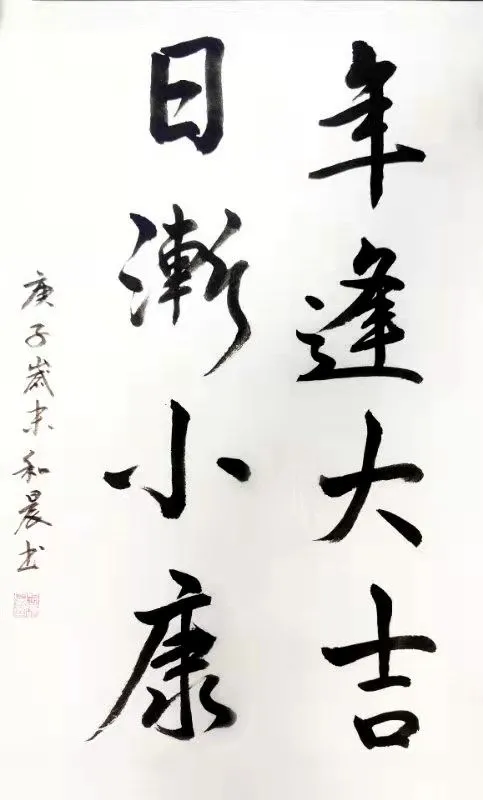 年逢大吉
日漸小康
庚子歲末和晨书